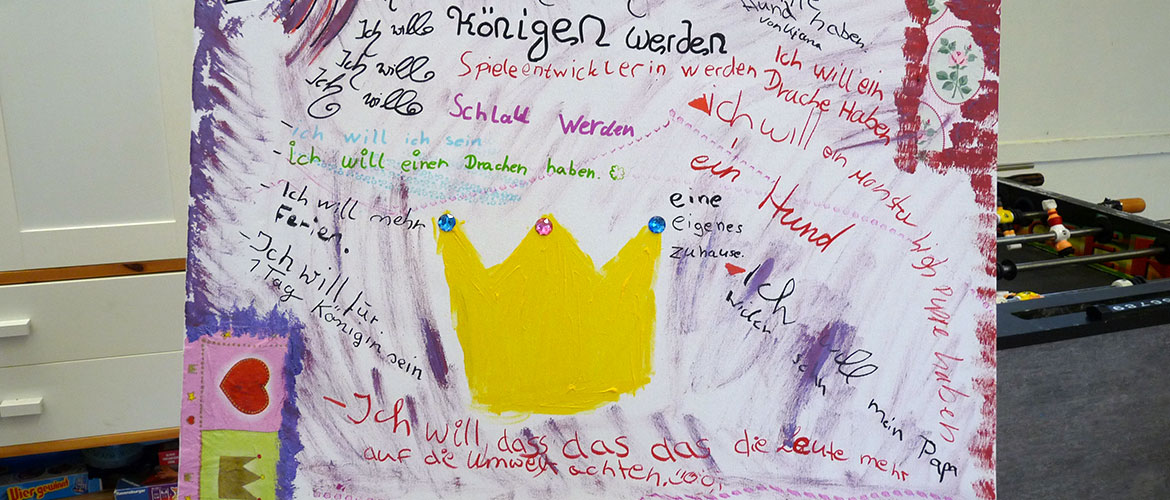 Hund haben.
von Kiana
Ich will Königen werden
Ich will Spieleentwicklerin werden
Ich will Schlau Werden
ich will ich sein
- ich will einen Drachen haben.
- Ich will mehr
Ferien.
- Ich will für
1 Tag Königin sein
Ich will ein
Drache Haben
ich will ein Monster high Puppe haben
ein Hund
eine
eigenes
zuhause.
Ich will
mein Papa
- Ich will dass das das die leute mehr
auf die Umwelt achten.
Vier gewinnt